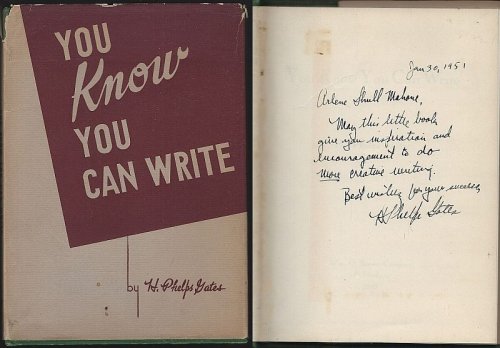 YOU
Know
YOU
CAN WRITE
by H. Phelps Gates
Jan 30, 1951
Arlene Shull Mahone,
May this little book
give you inspiration and
encouragement to do
more creative writing.
Best wishes for your success
H Phelps Gates